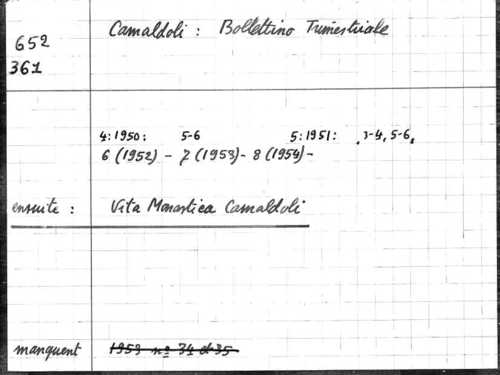 Camaldoli : Bollettino Trimestriale
652
361
4:1950: 5-6 5:1951: 3-4, 5-6,
6 (1952) - 7 (1953) - 8 (1954) -
ensuite : Vita Monastica Camaldoli
manquent 1953 nº 34 et 35